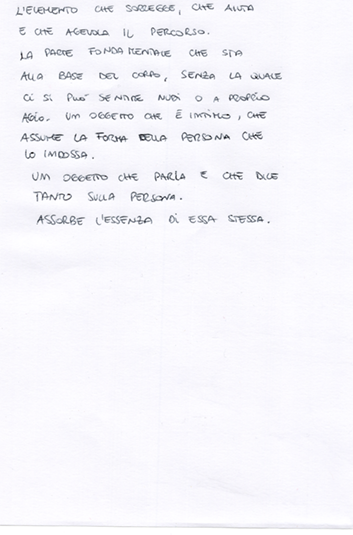 L'ELEMENTO CHE SORREGGE, CHE AIUTA
E CHE AGEVOLA IL PERCORSO.
LA PARTE FONDAMENTALE CHE STA
ALLA BASE DEL CORPO, SENZA LA QUALE
CI SI PUO' SENTIRE NUDI O A PROPRIO
AGIO. UM OGGETTO CHE È INTIMO, CHE
ASSUME LA FORMA DELLA PERSONA CHE
LO INDOSSA.
UM OGGETTO CHE PARLA E CHE DICE
TANTO SULLA PERSONA.
ASSORBE L'ESSENZA DI ESSA STESSA.